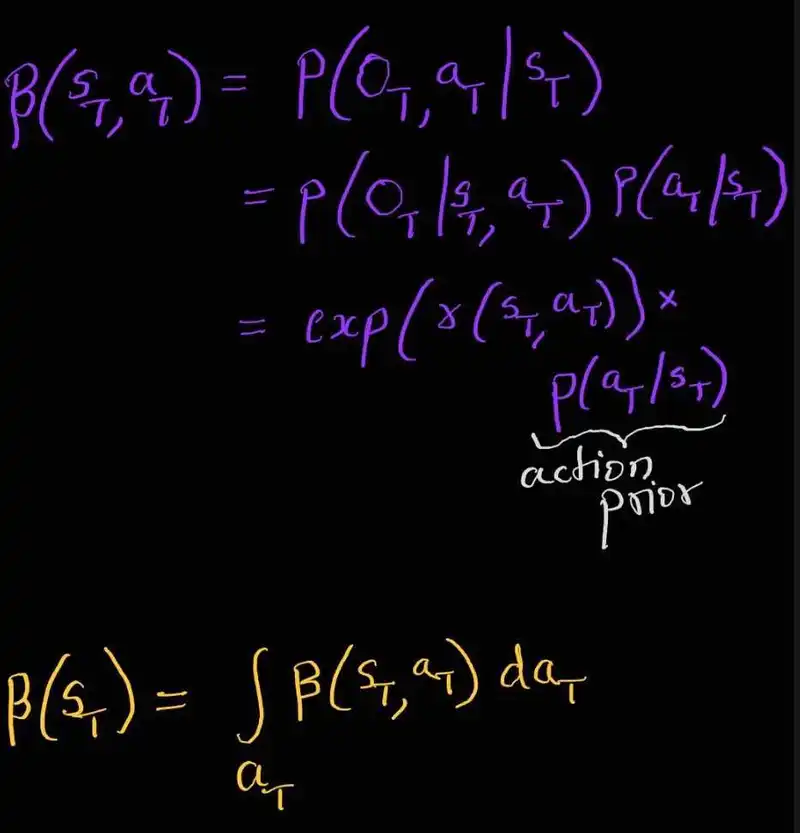 β(s_T, a_T) = P(O_T, a_T | s_T)
= P(O_T | s_T, a_T) P(a_T | s_T)
= exp(r(s_T, a_T)) ×
P(a_T | s_T)
action
prior
β(s_T) = ∫_{a_T} β(s_T, a_T) da_T